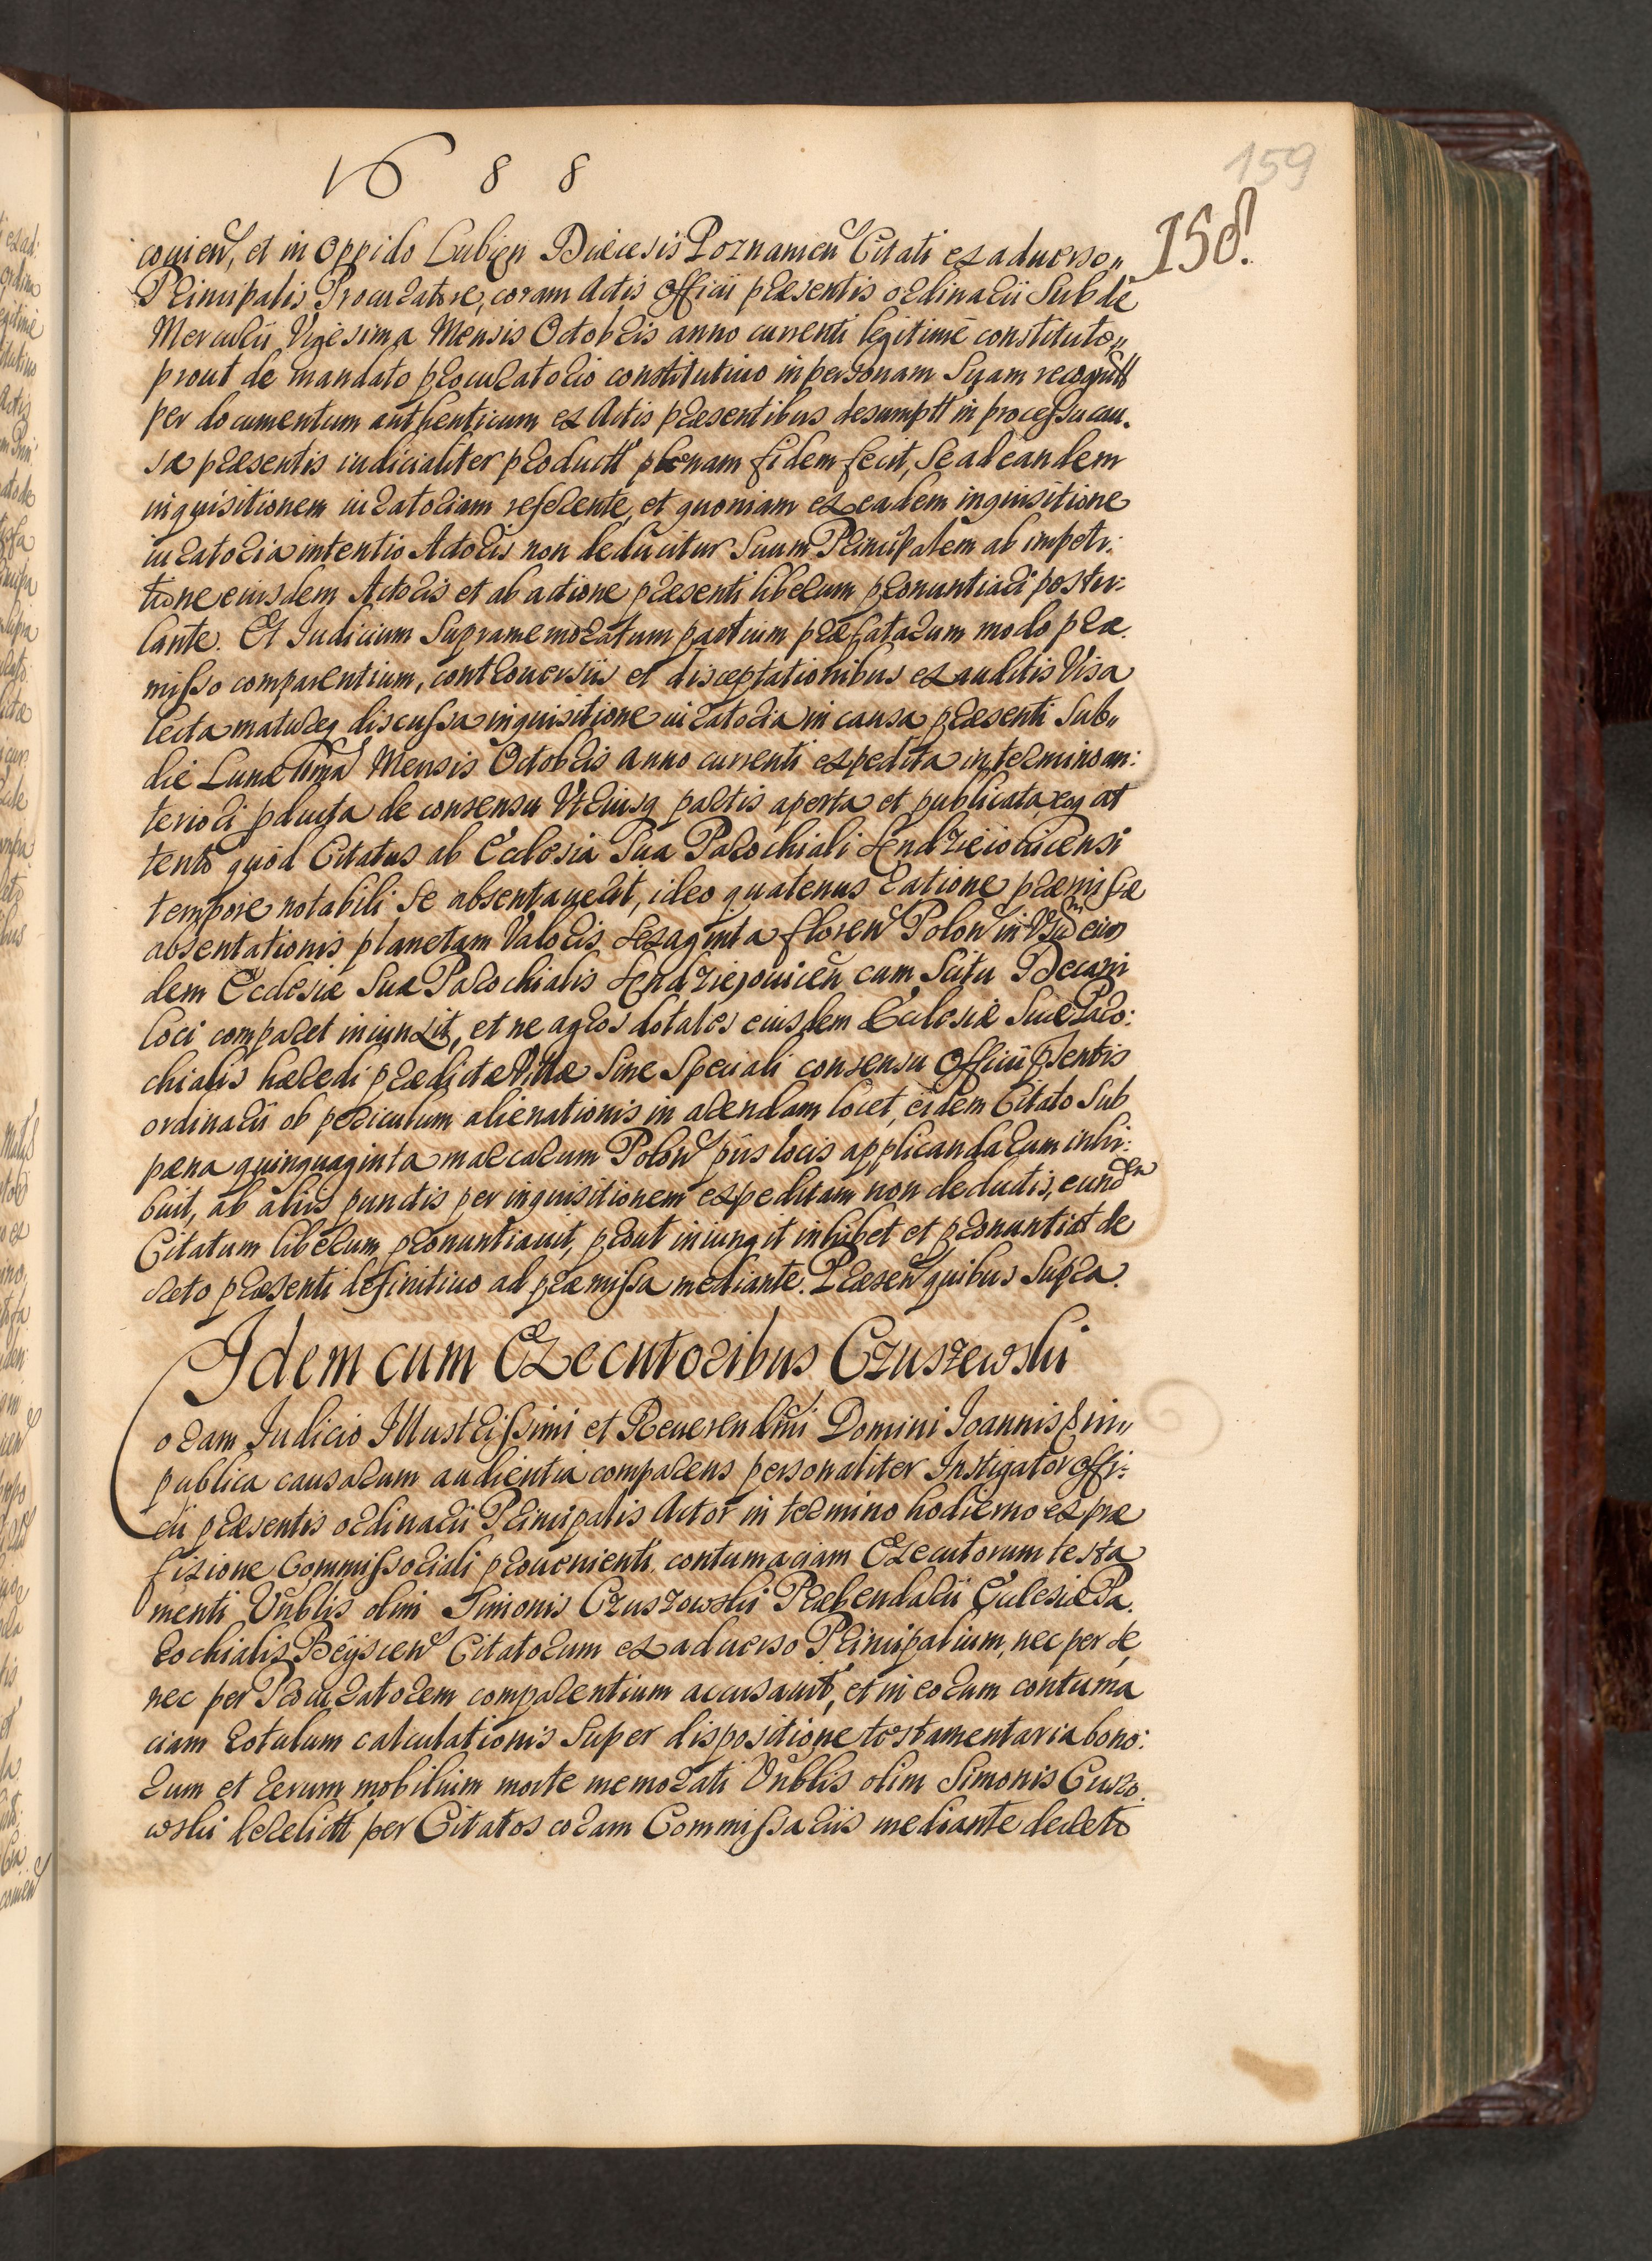 1688
159
158.
couien, et in Oppido Lubien Diæcesis Poznamen Citati ex aduerso„
Principalis Procuratore, coram Actis Officii præsentis ordinarii Sub die
Mercurii Vigesima Mensis Octobris anno currenti legitime constituto„
prout de mandato procuratorio constitutiuo in personam Suam recognitt
per documentum authenticum ex Actis præsentibus desumptt in processu cau.
sæ præsentis iudicialiter productt plenam fidem fecit, Se ad eandem
inquisitionem iuratoriam referente, et quoniam ex eadem inquisitione
iuratoria intentio Actoris non deducitur Suum Principalem ab impeti:
tione eiusdem Actoris et ab actione præsenti liberum pronuntiari postu:
lante. Et Judicium Supramemoratum partium præfatarum modo præ.
misso comparentium, controuersiis et disceptationibus exauditis Visa
lecta matureq discussa inquisitione iuratoria in causa præsenti Sub„
die Lunæ Mensis Octobris anno currenti expedita in termino an:
teriori pducta de consensu Vtriusq partis aperta et publicata, eoq at
tento quod Citatus ab Ecclesia Sua Parochiali Sendzieiouicensi
tempore notabili Se absentauerit, ideo quatenus ratione præmissæ
absentationis planetam Valoris Sexaginta floren Polon in Vsum eius
dem Ecclesiæ Suæ Parochialis Sendzieiouicen cum Scitu Decani
loci comparet iniunxit, et ne agros dotales eiusdem Ecclesiæ Suæ Paro:
chialis hæredi prædictæ Villæ Sine Speciali consensu Officii pſentis
ordinarii ob periculum alienationis in arendam locet, eidem Citato Sub
pæna quinquaginta marcarum Polon piis locis applicandarum inhi:
buit, ab aliis punctis per inquisitionem expeditam non deductis, eundem
Citatum liberum pronuntiauit, prout iniungit inhibet et pronuntiat de
creto præsenti definitiuo ad præmissa mediante. Præsen quibus Supra.
Idem cum Executoribus Czuszewski
Coram Iudicio Illustrissimi et Reuerendmi Domini Joannis in„
publica causarum audientia comparens personaliter Instigator offi:
cii præsentis ordinarii Principalis Actor in termino hodierno ex præ
fixione Commissoriali prouenienti contumaciam Executorum testa
menti Vnblis olim Simonis Czuszowski Præbendarii Ecclesiæ Pa.
rochialis Beÿscen Citatorum ex aduerso Principalium, nec per se,
nec per Procuratorem comparentium accusauit, et in eorum contuma
ciam rotulum calculationis Super dispositione testamentaria bono:
rum et rerum mobilium morte memorati Vnblis olim Simonis Cuszo.
wski derelictt per Citatos coram Commissariis mediante decreto